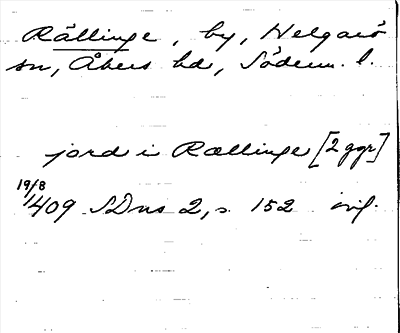 Rällinge, by, Helgarö
sn, Åkers hd, Söderm. l.
jord i Rællinge [2 ggr]
19/8
1409 SDns 2, s. 152 orig.